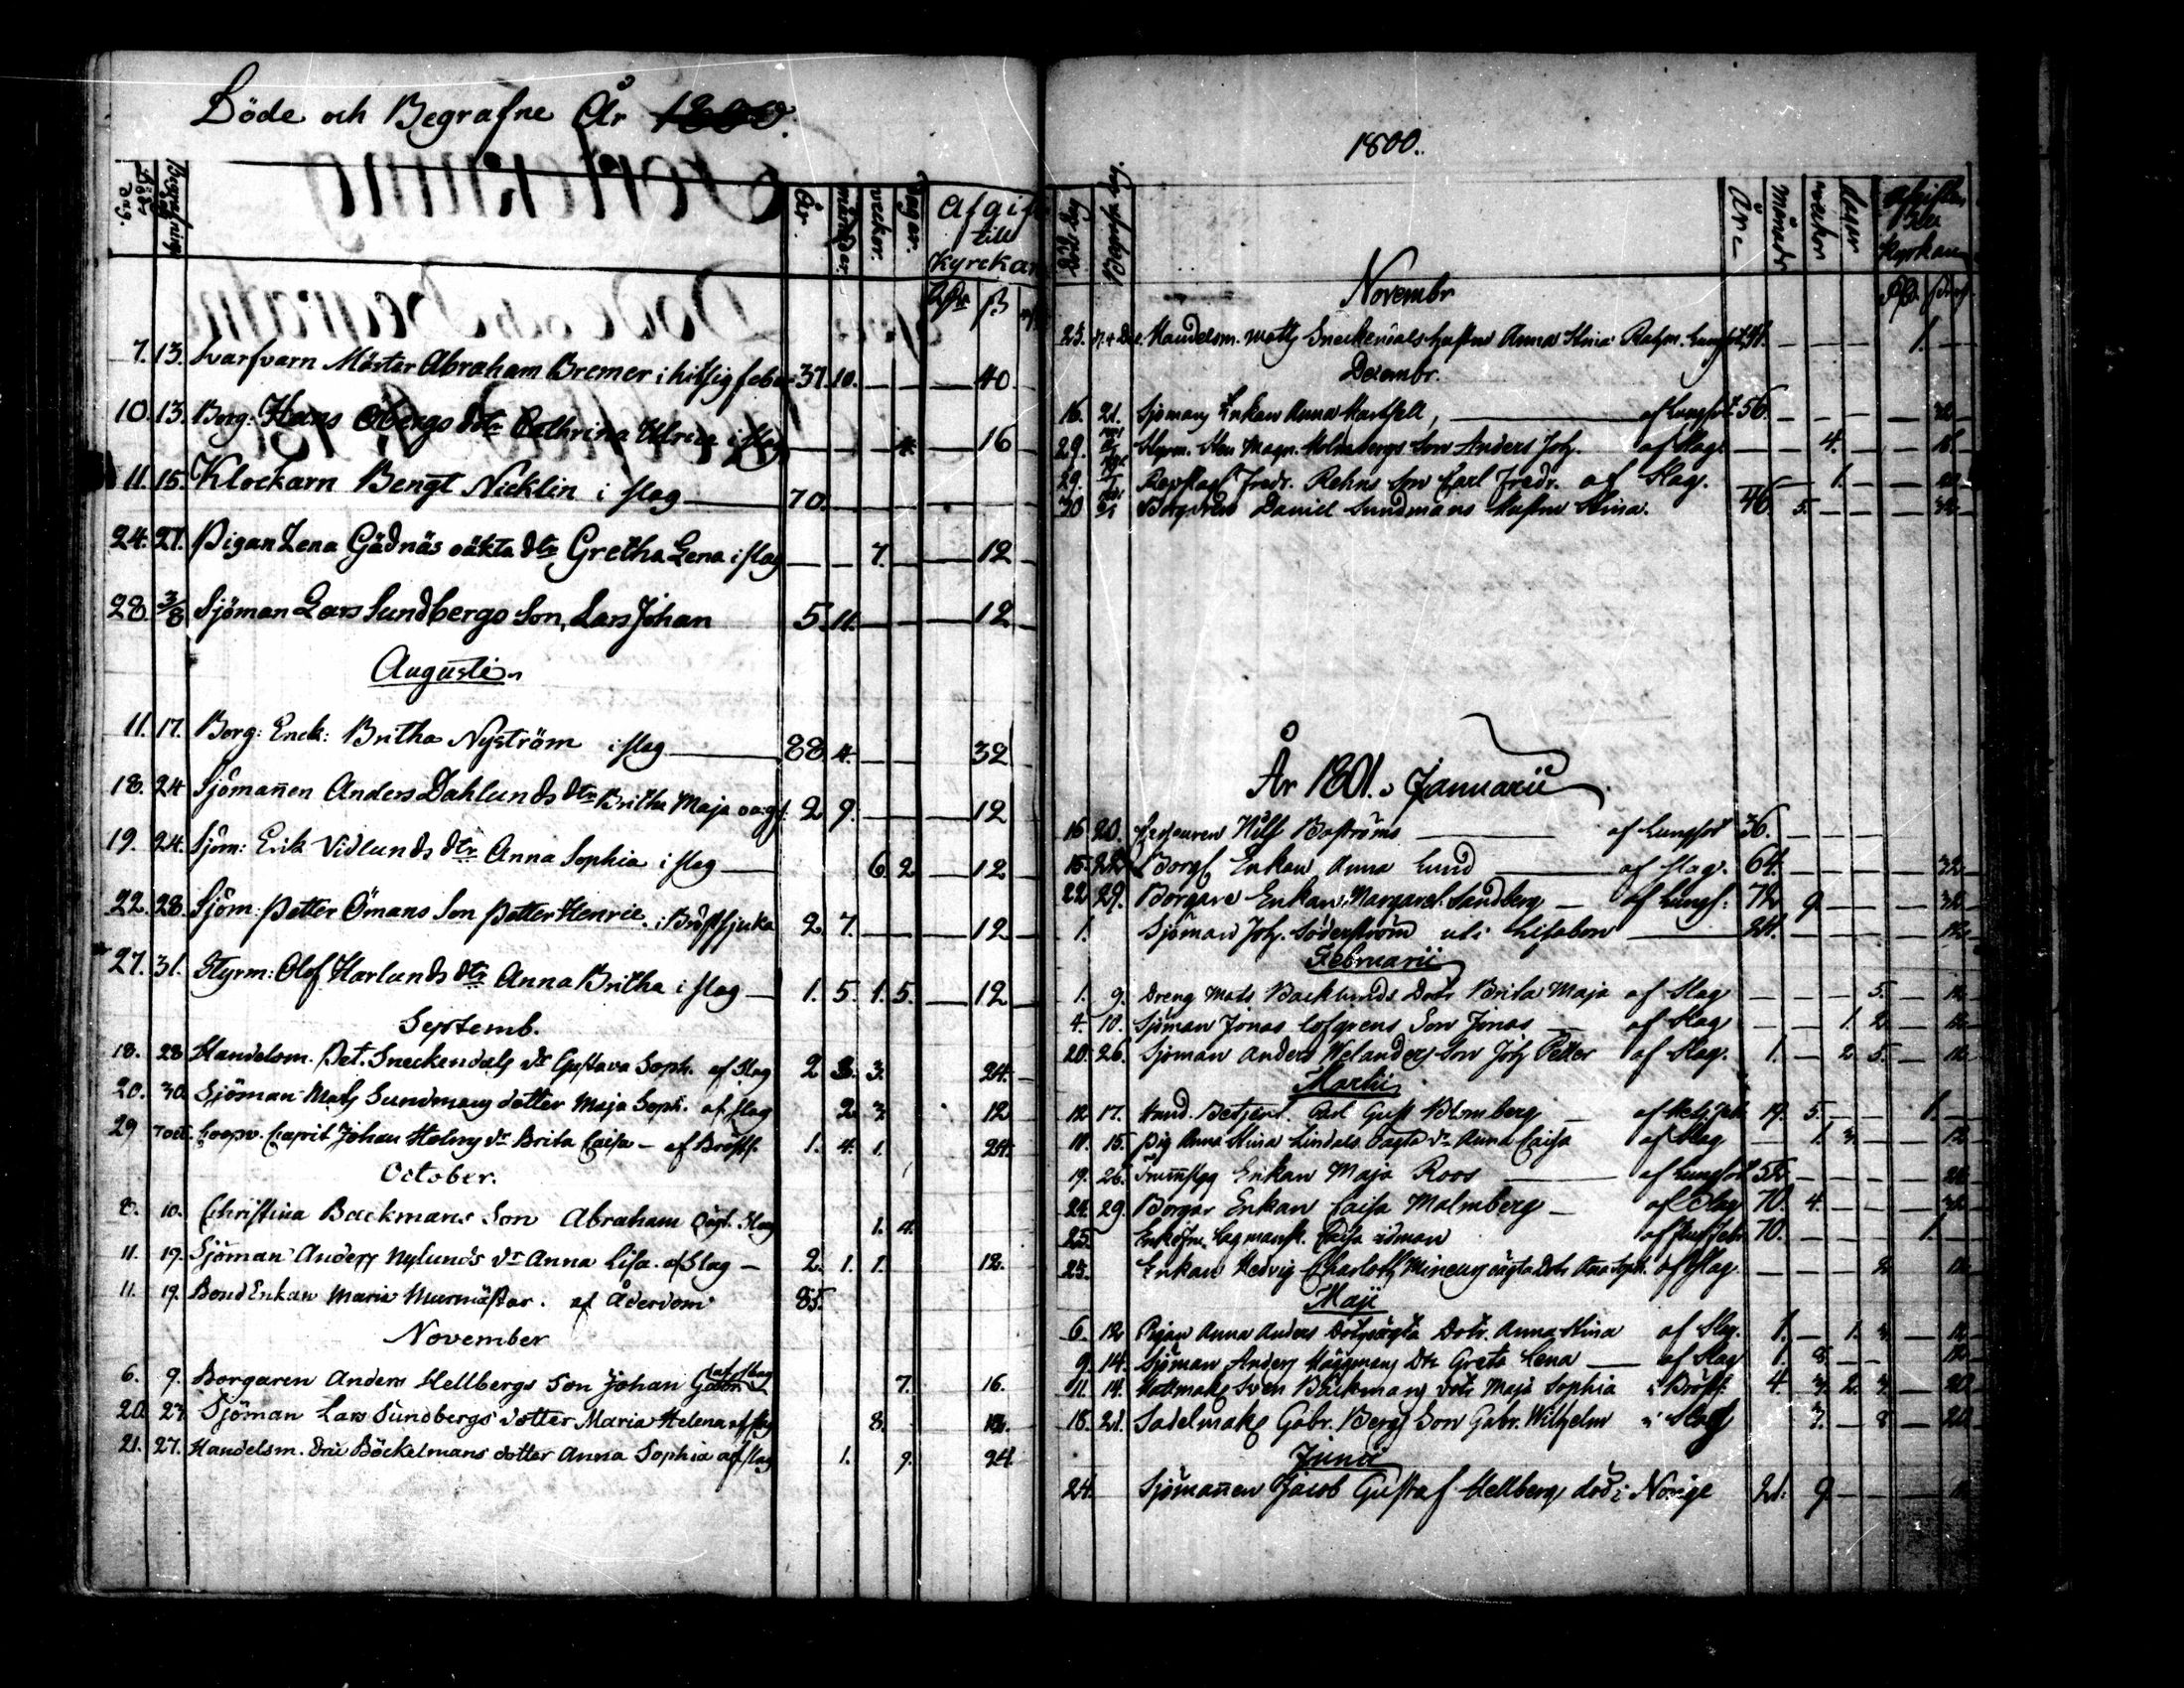 Döde och Begrafne År 1800.
Döds dag. Begrafnings dag År. månader. veckor. dagar. Afgift till Kyrckan
Rdr ß
7. 13. Svarfvarn Mäster Abraham Bremer i hitsig feber 37. 10. — — — 40
10. 13. Borg: Hans Öbergs dtr Cathrina Ulrica i slag — — — — 16
11. 15. Klockarn Bengt Nicklin i slag — 70.
24. 27. Pigan Lena Gädnäs oäkta dtr Gretha Lena i slag — — 7. — — 12
28. 3/8 Sjöman Lars Sundbergs Son, Lars Johan 5. 11. — — — 12
Augusti.
11. 17. Borg: Enck: Britha Nyström i slag — 88 4. — — 32
18. 24 Sjömanen Anders Dahlunds dtr Britha Maja 2 9. — — — 12
19. 24. Sjöm: Erik Vidlunds dtr Anna Sophia i slag — 6 2 — 12
22. 28. Sjöm: Petter Ömans Son Petter Henric i Bröstsjuka 2. 7. — — — 12
27. 31. Styrm: Olof Harlunds dtr Anna Britha i slag — 1. 5. 1. 5. — 12
Septemb.
18. 28 Handelsm. Pet. Sneckendals dr Gustava Soph. af Slag 2 3. 3. 24.
20. 30. Sjöman Mats Sundmans dotter Maja Soph. af slag 2. 3 12
29 7 oct. Coopv. Capit Johan Holms dr Brita Caisa — af Bröstf. 1. 4. 1. 24.
October.
8. 10. Christina Backmans Son Abraham Slag 1. 4.
11. 19. Sjöman Anders Nylunds dr Anna Lisa. af Slag — 2. 1. 1. 12.
11. 19. Bond Enkan Maria Murmästar. af Ålderdom 85.
November
6. 9. Borgaren Anders Hellbergs Son Johan Gabr. af slag 7. 16.
20 23. Sjöman Lars Sundbergs dotter Maria Helena af slag 8. 12.
21. 27. Handelsm. Eric Böckelmans dotter Anna Sophia af slag 1. 9. 24
1800.
År Månader veckor Dagar afgiften till Kyrkan
Novembr
23. 7. Dec. Handelsm. Matts Sneckendals hustru Anna Stina Lungsot — — — — 1. —
Decembr.
16. 21. Sjömans Enkan Anna — af Lungsot. 56. — — — — 32
29. Styrm. Magn. Holmbergs Son Anders Joh. af Slag. — — 4. — —
29. Repslag. Fredr. Rehns Son Carl Fredr. af Slag. — 1. — —
30 Borgaren Daniel Sundmans Hustru Stina. 46. 5. — — — 32
År 1801. Januarii
16 20. Boströms — af Lungsot 36. — — —
15. 22 Borgs Enkan Anna Lund — af slag. 64. — — — — 32
22 29. Borgare Enkan Margaret. Sandberg — af Lungs: 72 9. — — — 32
1. Sjöman Joh. Söderström uti Lisabon — 24. — — — — 12
Februarii
1. 9. Dreng Mats Backlunds Dotr Brita Maja af Slag — — — 5. — 12
4. 10. Sjöman Jonas Löfgrens Son Jonas — af Slag — — 1. 2. — 12
20. 26. Sjöman Anders Welanders Son Joh Petter af Slag. 1. — 2. 5. — 12
Martii
12 17. Hand. Betjent. Carl Gust Blomberg — af 19. 5. — — 1. —
11. 15. Pig Anna Stina Lindals oägta dr Anna Caisa af Slag — 1. 3. — 12
19. 26. Enkan Maja Roos — af Lungsot 52 — — — —
22. 29. Borgar Enkan Caisa Malmberg — af Slag 70. 4. — — — 32
25. Caisa 70. — — — 1. —
25. Enkan Hedvig Charlotta oägta Dotr Ana Soph. af Slag. — — — 2 12
Maji
6. 12 Pigan Anna Anders Dotrs oägta Dotr. Anna Stina af Slag. 1. — 1. 3. — 12
9. 14. Sjöman Anders Häggmans Dtr Greta Lena — af Slag 1. 8. — — 12
11. 14. Hattmak. Sven Backmans dotr Maja Sophia i Bröstf. 4. 3. 2. 3. — 20
18. 21. Sadelmak. Gabr. Bergs Son Gabr. Wilhelm i Slag 7. — 8 — 20
Junii
24. Sjömanen Jacob Gustaf Hellberg, död i Norige 21. 9. — — — 12